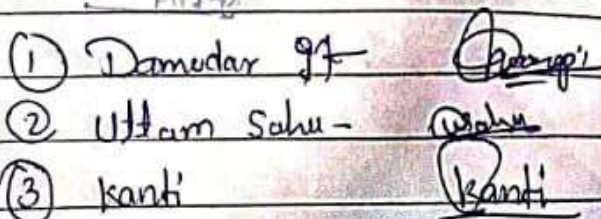 ① Damodar जी -
② Uttam Sahu - usahu
③ Kanti Kanti